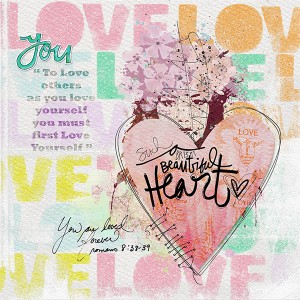 LOVE LOVE
You
" To Love
others
as you love
yourself
you must
first Love
Yourself "
LOVE
Beautiful
Heart
You are loved
forever
romans 8:38-39
LOVE LOVE